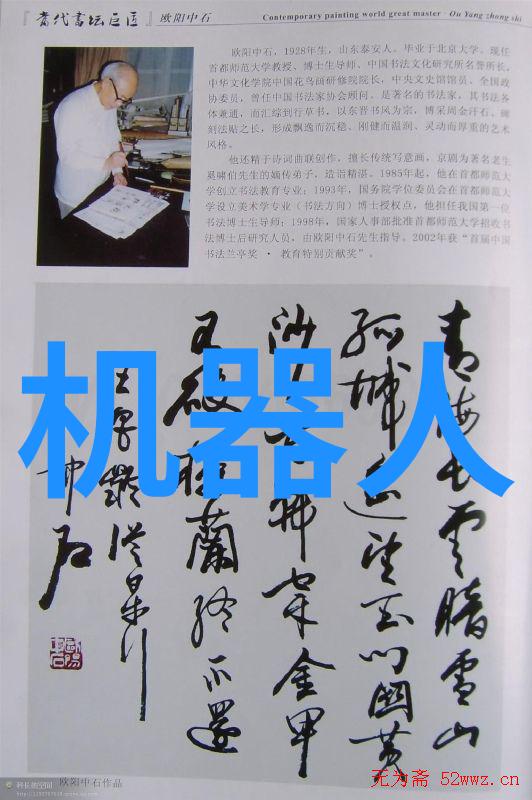 『当代书坛巨匠』欧阳中石 Contemporary painting world great master · Ou Yang zhong shi
欧阳中石，1928年生，山东泰安人。毕业于北京大学。现任
首都师范大学教授、博士生导师、中国书法文化研究所名誉所长，
中华文化学院中国花鸟画研修院院长，中央文史馆馆员、全国政
协委员，曾任中国书法家协会顾问。是著名的书法家，其书法各
体兼通，而汇综到行草书，以东晋书风为宗，博采周金汗石、碑
刻法贴之长，形成飘逸而沉稳、刚健而温润、灵动而厚重的艺术
风格。
他还精于诗词曲联创作，擅长传统写意画，京剧为著名老生
奚啸伯先生的嫡传弟子，造诣精湛。1985年起，他在首都师范大
学创立书法教育专业；1993年，国务院学位委员会在首都师范大
学设立美术学专业（书法方向）博士授权点，他担任我国第一位
书法博士生导师；1998年，国家人事部批准首都师范大学招收书
法博士后研究人员，由欧阳中石先生指导。2002年获“首届中国
书法兰亭奖 · 教育特别贡献奖”。
青海长云暗雪山
孤城遥望玉门关黄
沙百战穿金甲
不破楼兰终不还
中石
机器人
欧阳中石作品
无为斋 52wwz.cn